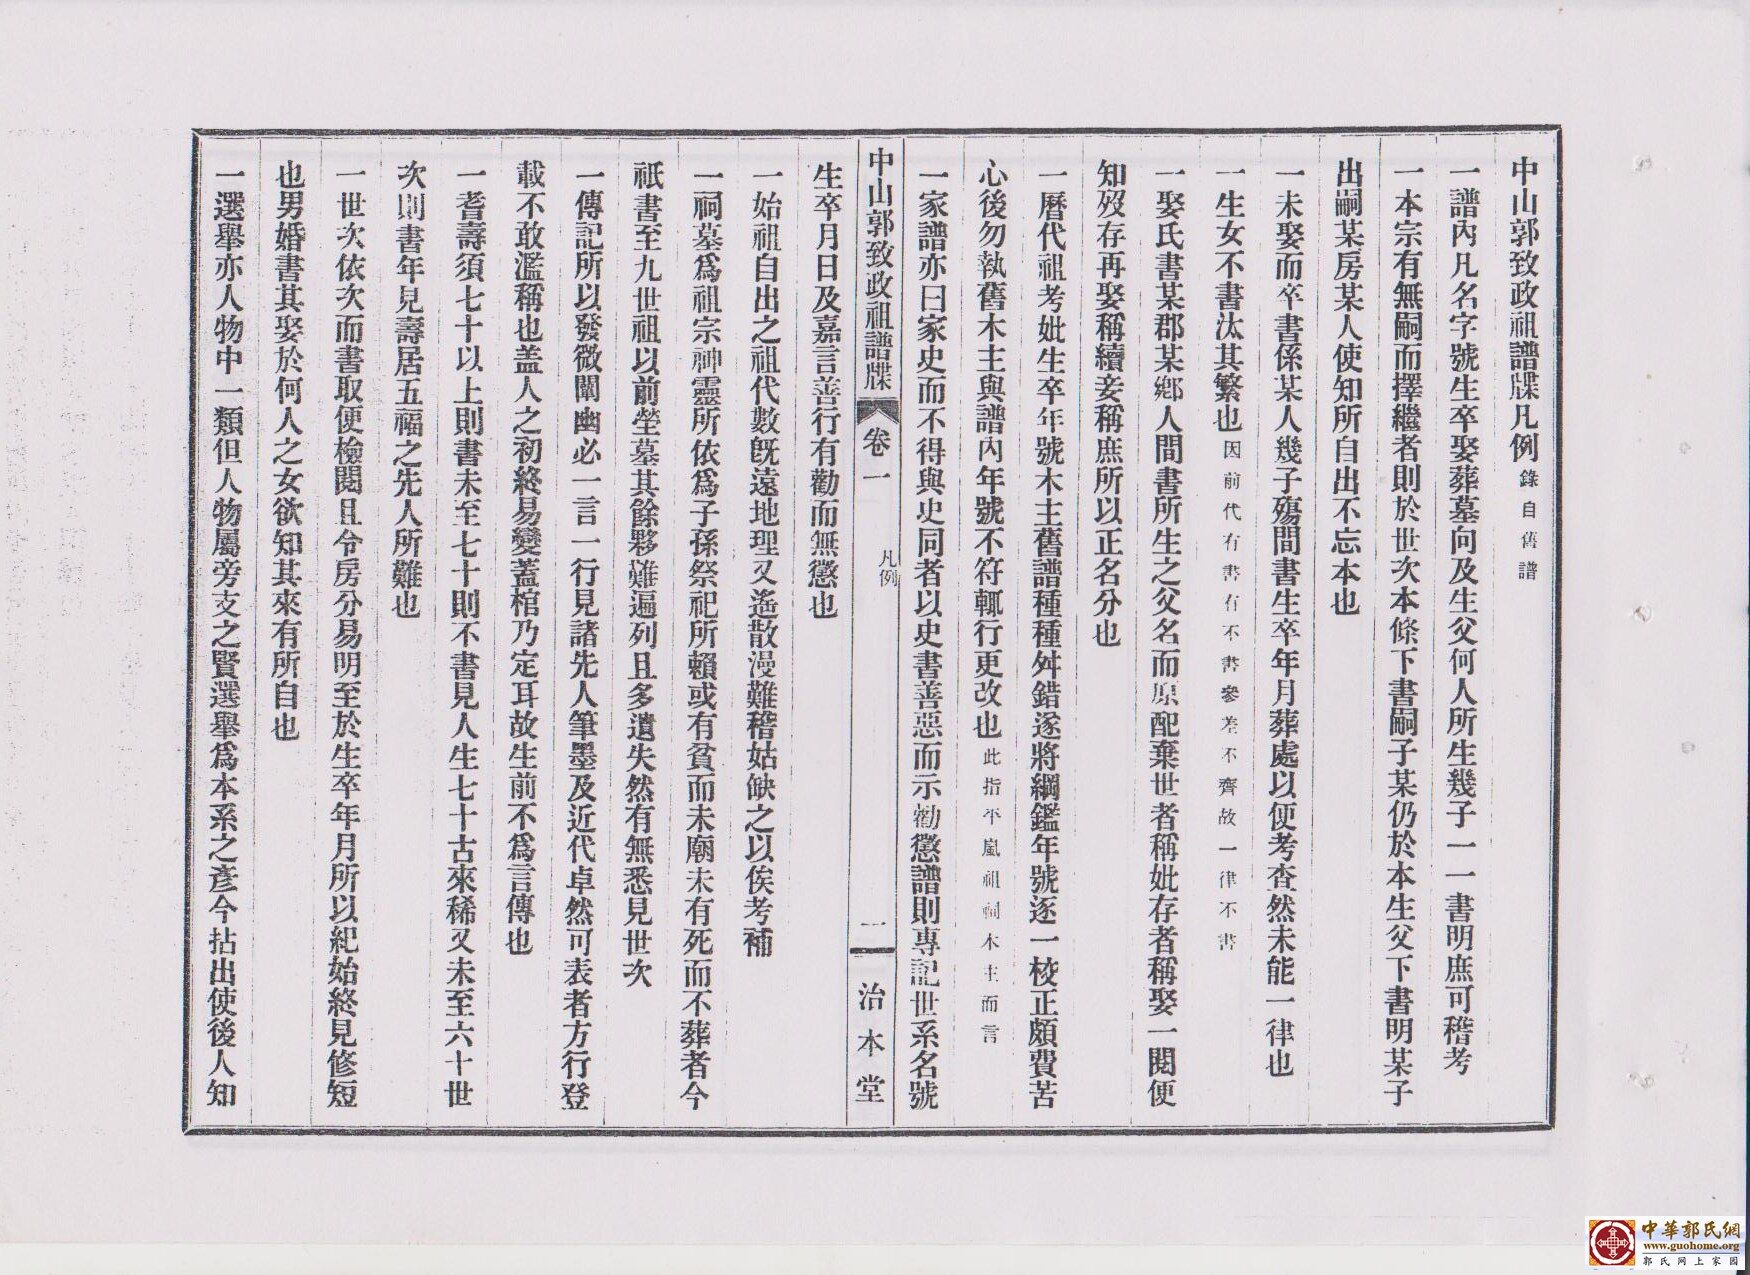 中山郭致政祖譜牒凡例 錄自舊譜
一譜內凡名字號生卒娶葬墓向及生父何人所生幾子一一書明庶可稽考
一本宗有無嗣而擇繼者則於世次本條下書嗣子某仍於本生父下書明某子
出嗣某房某人使知所自出不忘本也
一未娶而卒書係某人幾子殤間書生卒年月葬處以便考查然未能一律也
一生女不書汰其繁也 因前代有書有不書參差不齊故一律不書
一娶氏書某郡某鄉人間書所生之父名而原配棄世者稱妣存者稱娶一閱便
知歿存再娶稱續妾稱庶所以正名分也
一曆代祖考妣生卒年號木主舊譜種種舛錯逐將綱鑑年號逐一校正頗費苦
心後勿執舊木主與譜內年號不符輒行更改也 此指平嵐祖祠木主而言
一家譜亦曰家史而不得與史同者以史書善惡而示勸懲譜則專記世系名號
中山郭致政祖譜牒 卷一 凡例 一 治本堂
生卒月日及嘉言善行有勸而無懲也
一始祖自出之祖代數既遠地理又遙散漫難稽姑缺之以俟考補
一祠墓爲祖宗神靈所依爲子孫祭祀所賴或有貧而未廟未有死而不葬者今
祇書至九世祖以前塋墓其餘夥難遍列且多遺失然有無悉見世次
一傳記所以發微闡幽必一言一行見諸先人筆墨及近代卓然可表者方行登
載不敢濫稱也盖人之初終易變蓋棺乃定耳故生前不爲言傳也
一耆壽須七十以上則書未至七十則不書見人生七十古來稀又未至六十世
次則書年見壽居五福之先人所難也
一世次依次而書取便檢閱且令房分易明至於生卒年月所以紀始終見修短
也男婚書其娶於何人之女欲知其來有所自也
一選舉亦人物中一類但人物屬旁支之賢選舉爲本系之彥今拈出使後人知
中華郭氏網
www.guohome.org
郭氏网上家园